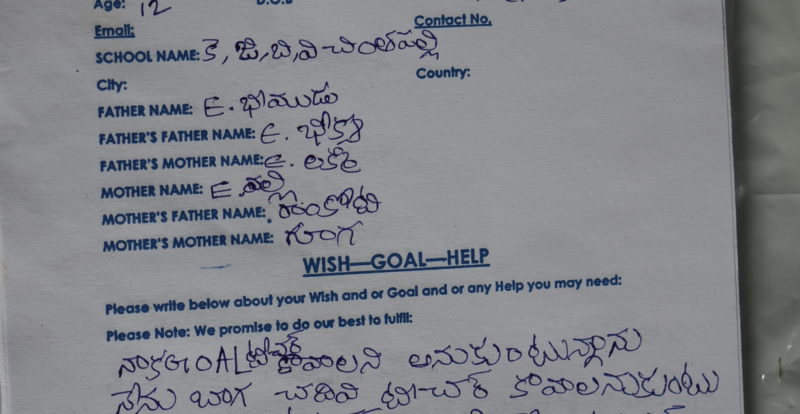 Age: 12 D.O.B
Email: Contact No.
SCHOOL NAME: కె, జి, బి, వి చింతపల్లి
City: Country:
FATHER NAME: E. భీముడు
FATHER'S FATHER NAME: E. భీక్యా
FATHER'S MOTHER NAME: E. లక్ష్మి
MOTHER NAME: E.
MOTHER'S FATHER NAME:
MOTHER'S MOTHER NAME: గంగ
WISH—GOAL—HELP
Please write below about your Wish and or Goal and or any Help you may need:
Please Note: We promise to do our best to fulfil:
నాకGOAL టీచర్ కావాలని అనుకుంటున్నాను
నేను బాగ చదివి టీచర్ కావాలనుకుంటు